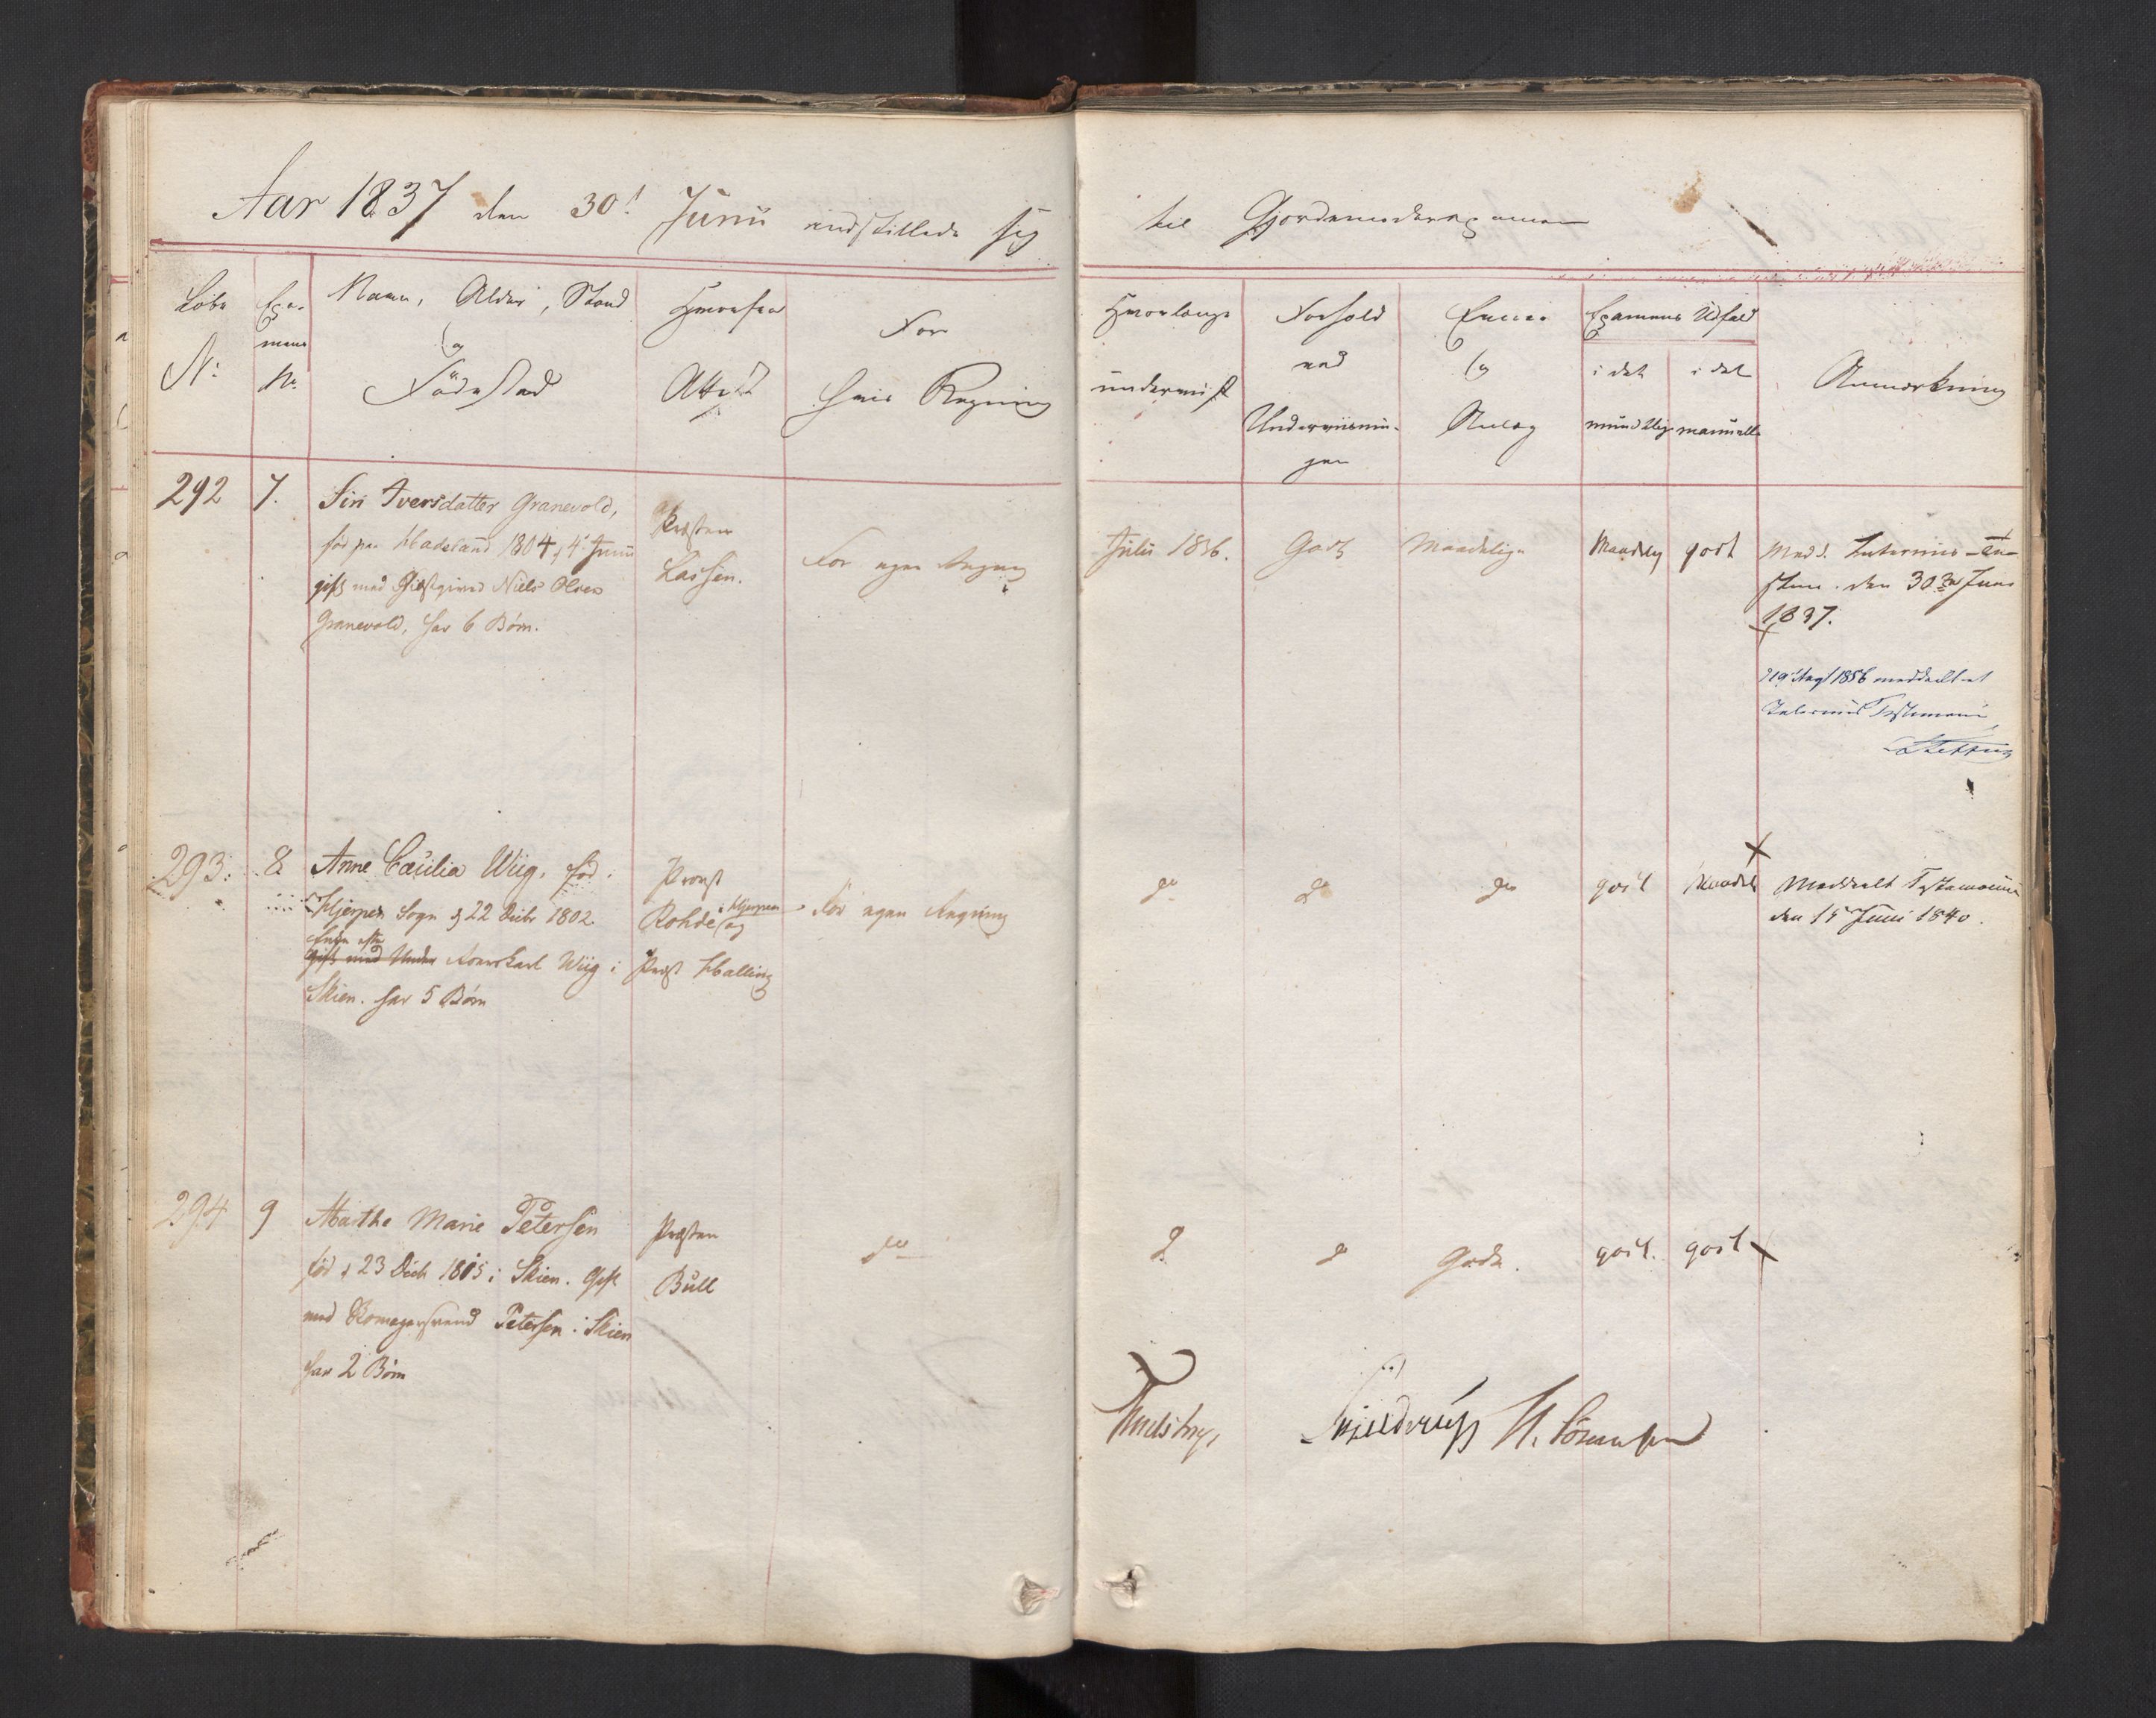 Aar 1837 den 30t Junii indstillede sig til Gjordemoderexamen
Løbe N:
Exa-
mens
No.
Navn, Alder, Stand
og
Fødested
Hvorfra
Attest
For
hvis Regning
Hvorlænge
underviist
Forhold
ved
Underviisnin-
gen
Evner
og
Anlæg
Examens Udfald
i det
mundtlige
i det
manuelle
Anmærkning
292
7.
Siri Iversdatter Granevold,
fød paa Hadeland 1804, 4 Junii
gift med Giæstgiver Niels Olsen
Granevold, har 6 Børn.
Præsten
Lassen.
For egen Regning
Julii 1836.
Godt
Maadelige
Maadelig
godt
Medd. Interims-Te-
stim. den 30 Juni
1837.
19 Aug 1856 meddeelt et
Interims Testimoni
293.
8
Anne Cæcilia Wiig, fød i
Hjerpen Sogn d 22 Decbr 1802
Enke efter
gift med Under Toerskarl Wiig i
Skien. har 5 Børn
Provst
Rohde i Hjerpen
og
Præst Halling
For egen Regning
do
do
do
godt
Maadel
Meddeelt Testamonie
den 15 Juni 1840.
294
9
Marthe Marie Petersen
fød d 23 Decb 1805 i Skien. Gift
med Skomagersvend Petersen i Skien
har 2 Børn
Præsten
Bull
do
d
d
Gode.
godt.
godt